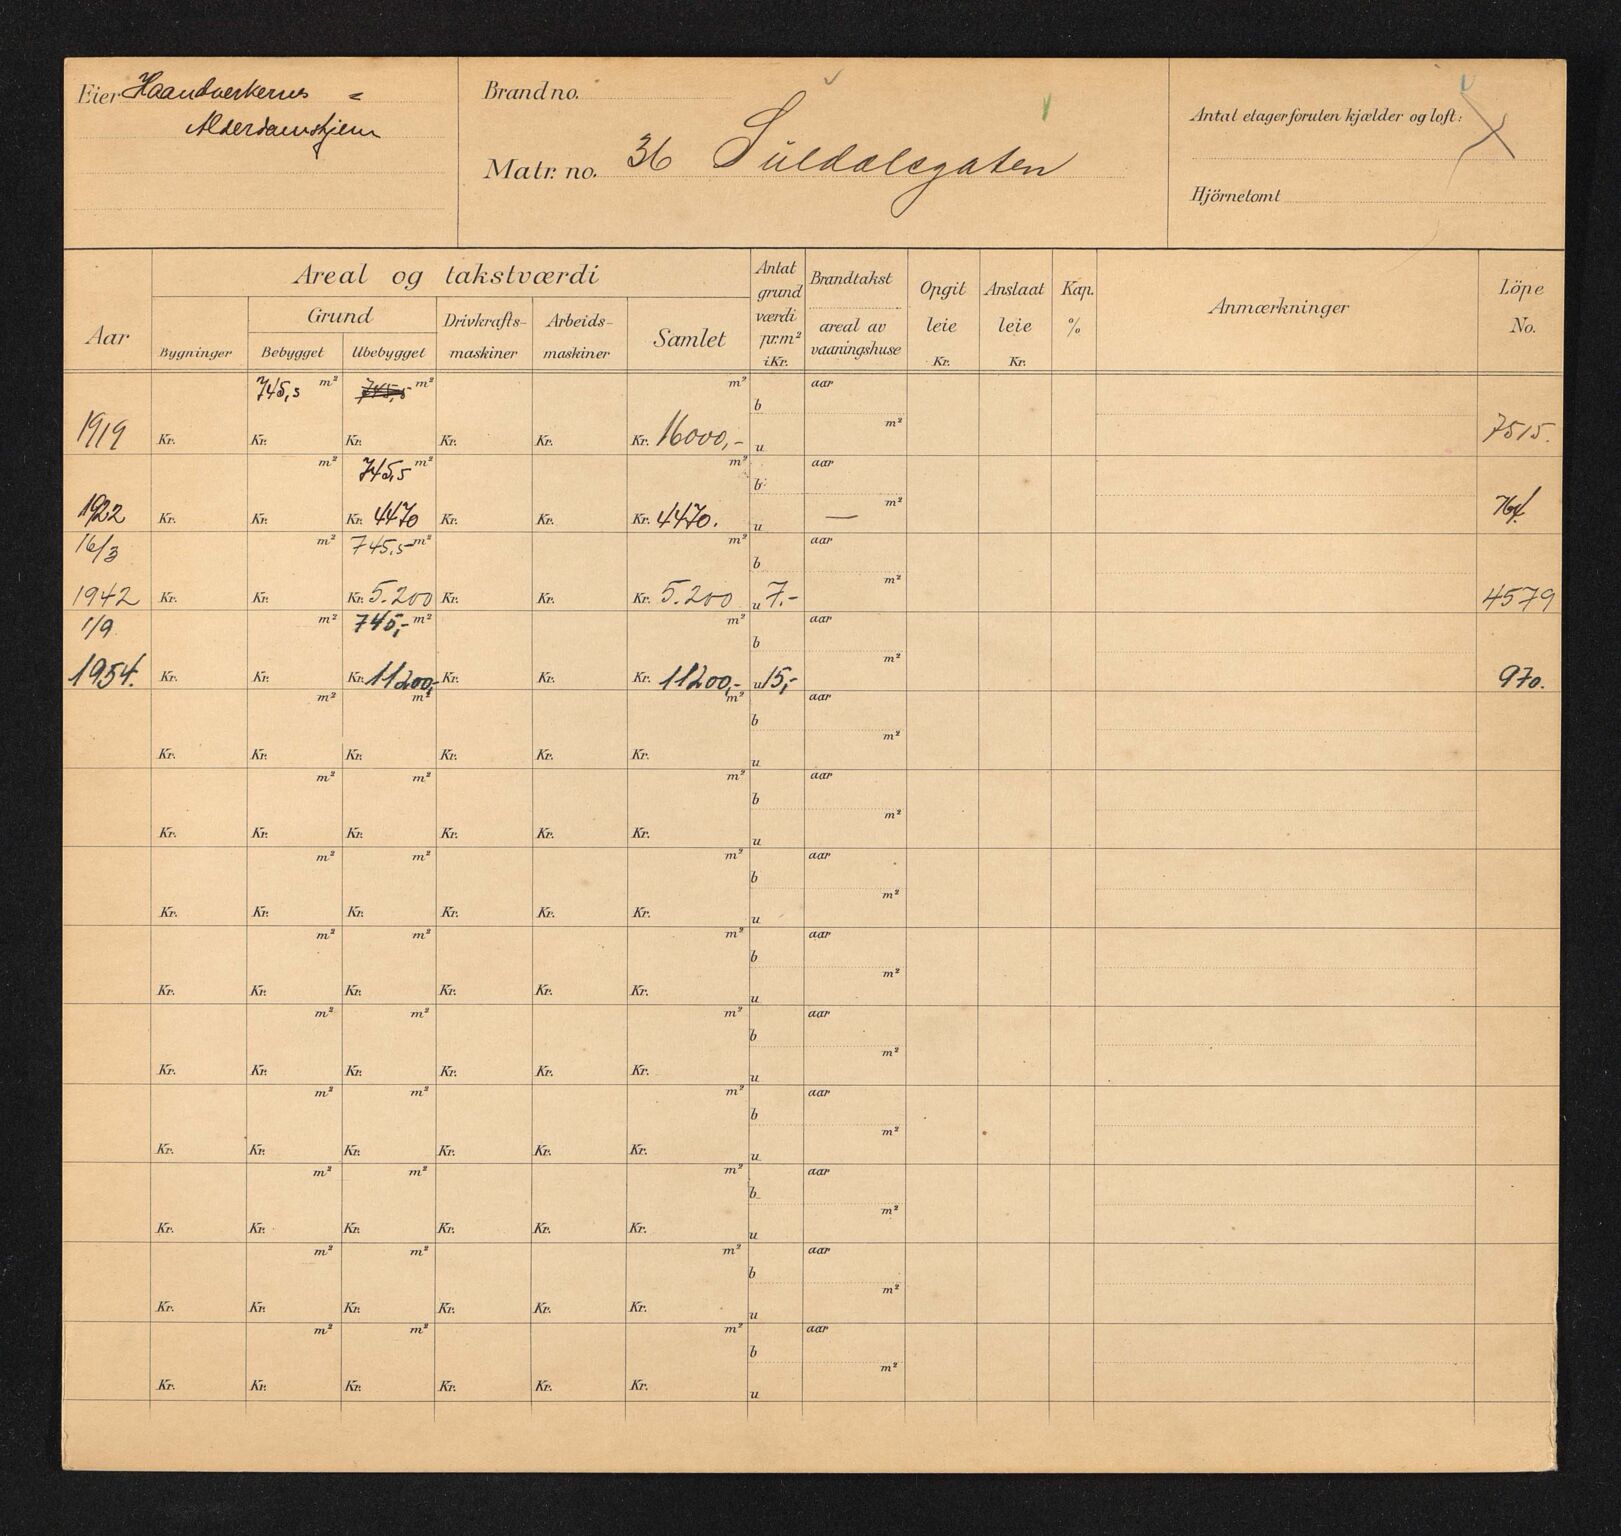 Eier Haandverkernes
Alderdomshjem
Brand no.
Matr. no. 36 Suldalsgaten
Antal etager foruten kjælder og loft:
Hjörnetomt
Aar
Areal og takstværdi
Bygninger
Grund
Bebygget Ubebygget
Drivkrafts-
maskiner
Arbeids-
maskiner
Samlet
Antat
grund
værdi
pr. m²
i Kr.
Brandtakst
areal av
vaaningshuse
Opgit
leie
Kr.
Anslaat
leie
Kr.
Kap.
%
Anmærkninger
Löpe
No.
745,5 m² 745,5 m² m² aar
b
m²
1919 Kr. Kr. Kr. Kr. Kr. Kr. 16000,- u 7515.
m² 745,5 m² m² aar
b
m²
1922 Kr. Kr. Kr. 4470 Kr. Kr. Kr. 4470. u —
16/3 m² 745,5 m² m² aar
b
m²
1942 Kr. Kr. Kr. 5.200 Kr. Kr. Kr. 5.200 u 7.- 4579
1/9 m² 745,- m² m² aar
b
m²
1954. Kr. Kr. Kr. 11200,- Kr. Kr. Kr. 11200,- u 15,- 970.
m² m² m² aar
b
m²
Kr. Kr. Kr. Kr. Kr. Kr. u
m² m² m² aar
b
m²
Kr. Kr. Kr. Kr. Kr. Kr. u
m² m² m² aar
b
m²
Kr. Kr. Kr. Kr. Kr. Kr. u
m² m² m² aar
b
m²
Kr. Kr. Kr. Kr. Kr. Kr. u
m² m² m² aar
b
m²
Kr. Kr. Kr. Kr. Kr. Kr. u
m² m² m² aar
b
m²
Kr. Kr. Kr. Kr. Kr. Kr. u
m² m² m² aar
b
m²
Kr. Kr. Kr. Kr. Kr. Kr. u
m² m² m² aar
b
m²
Kr. Kr. Kr. Kr. Kr. Kr. u
m² m² m² aar
b
m²
Kr. Kr. Kr. Kr. Kr. Kr. u